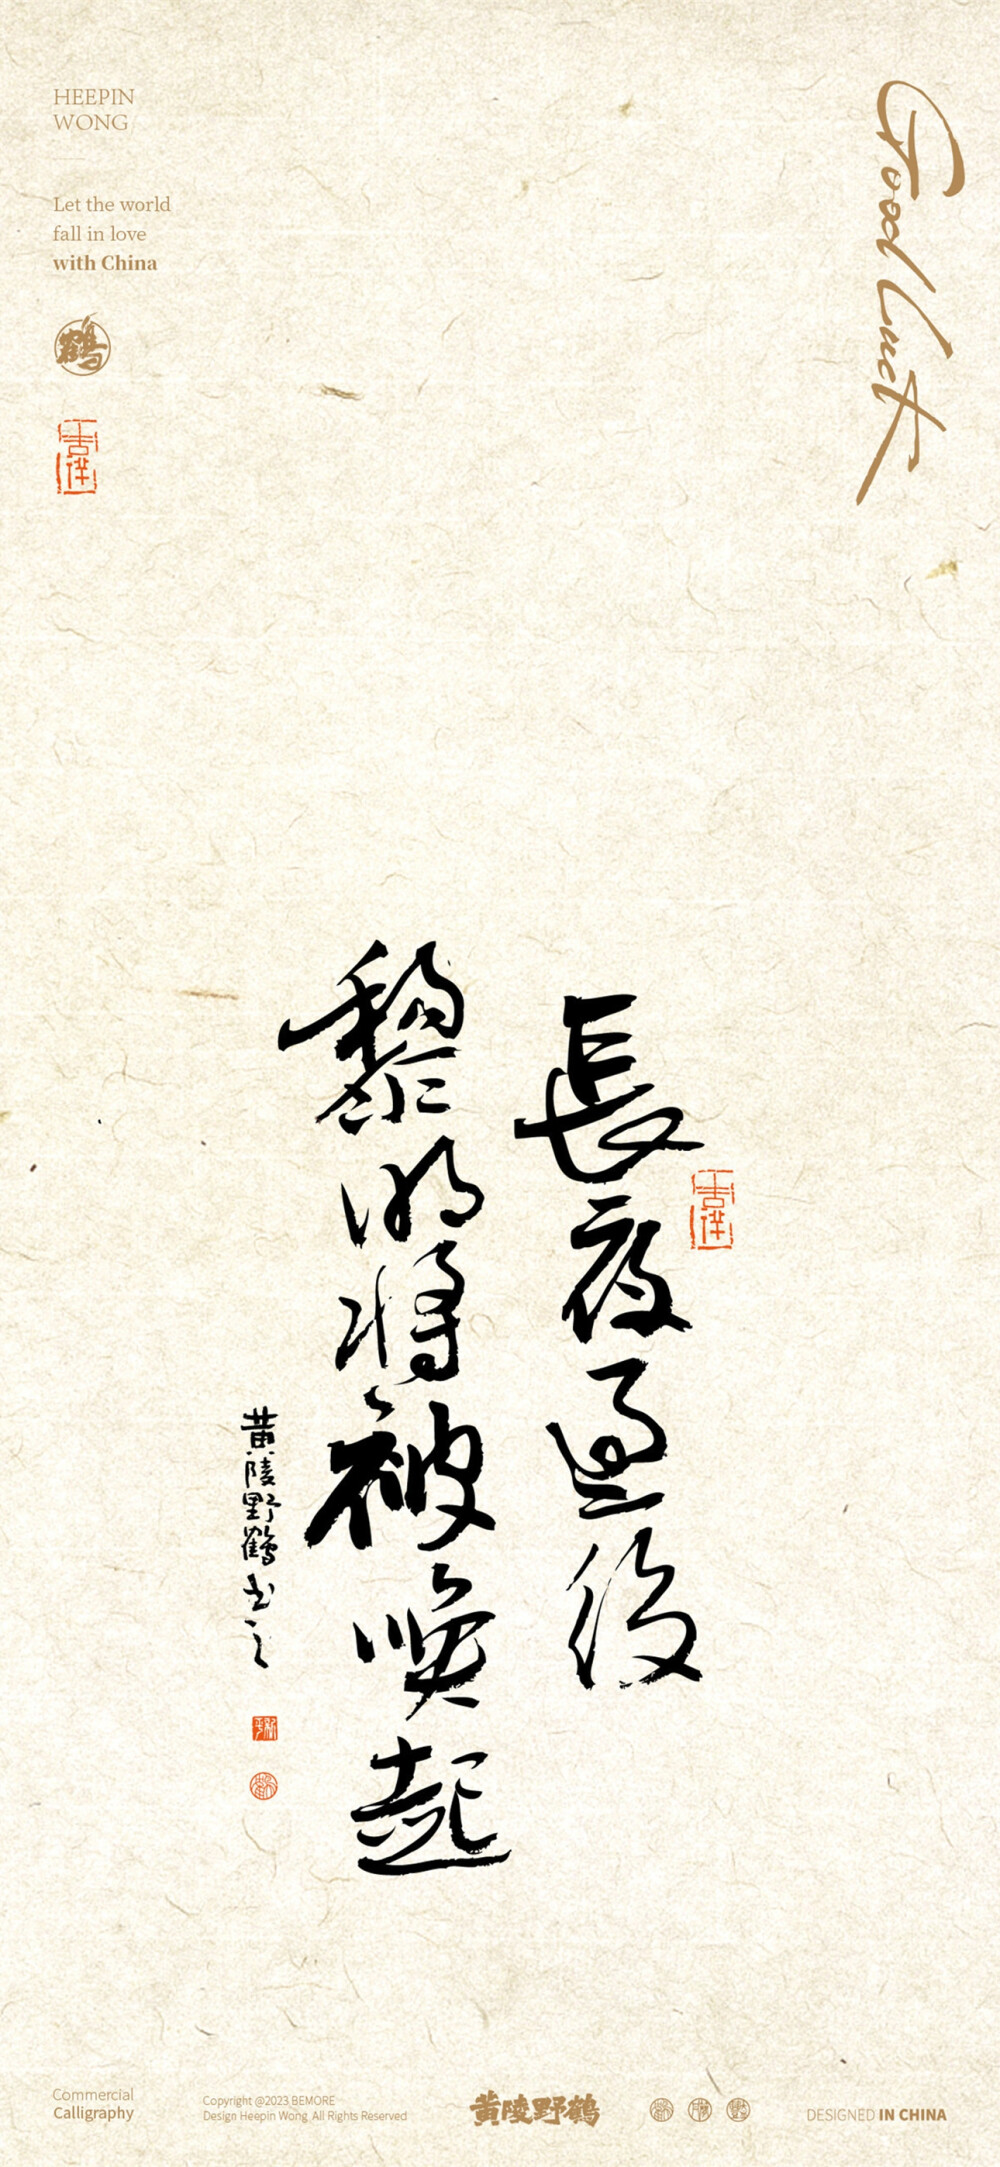 HEEPIN
WONG
Let the world
fall in love
with China
鶴
Good luck
長夜過後
黎明將被喚起
黄陵野鶴书之
Commercial
Calligraphy
Copyright @2023 BEMORE
Design Heepin Wong All Rights Reserved
黄陵野鶴
DESIGNED IN CHINA